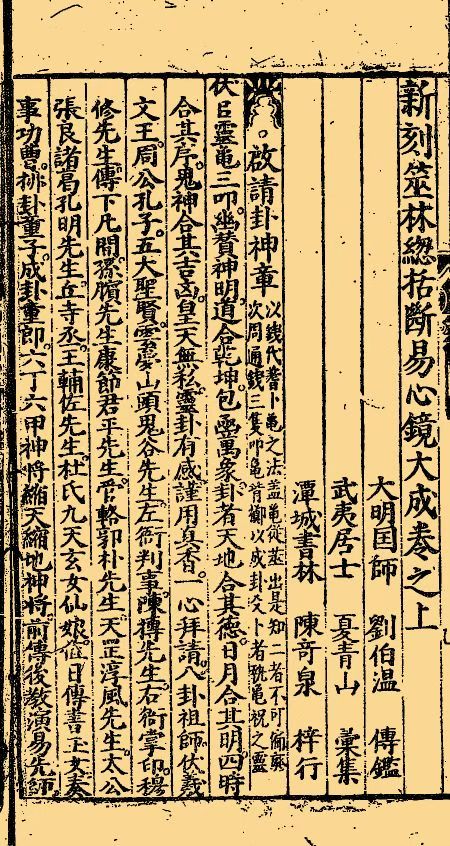 新刻筮林緫括斷易心鏡大成卷之上
大明国師 劉伯温 傳鑑
武夷居士 夏青山 彚集
潭城書林 陳奇泉 梓行
啟請卦神章 以錢代蓍卜亀之法盖亀從筮出是知二者不可偏廢
次周通錢三隻叩亀首擲以成卦爻卜者執亀祝之靈
伏㠯靈亀三叩幽賛神明道合乾坤包凾萬象卦者天地合其德日月合其明四時
合其序鬼神合其吉凶皇天無私靈卦有感謹用真香一心拜請八卦祖師伏羲
文王周公孔子五大聖賢雲夢山頭鬼谷先生左衙判事陳摶先生右衙掌印穆
修先生傳下凡間孫臏先生康節君平先生管輅郭朴先生天罡淳風先生太公
張良諸葛孔明先生丘寺丞王輔佐先生杜氏九天玄女仙娘值日傳善玉女奏
事功曹排卦童子成卦童郎六丁六甲神將縮天縮地神將前傳後教演易先師